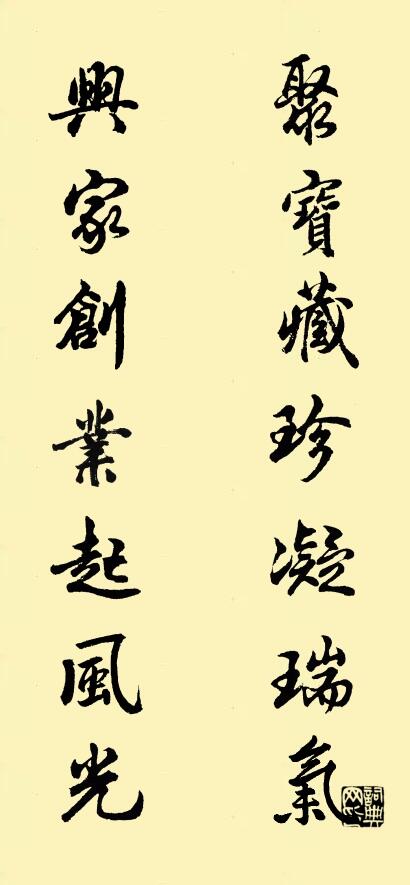 聚寶藏珍凝瑞氣
興家創業起風光
詞典網